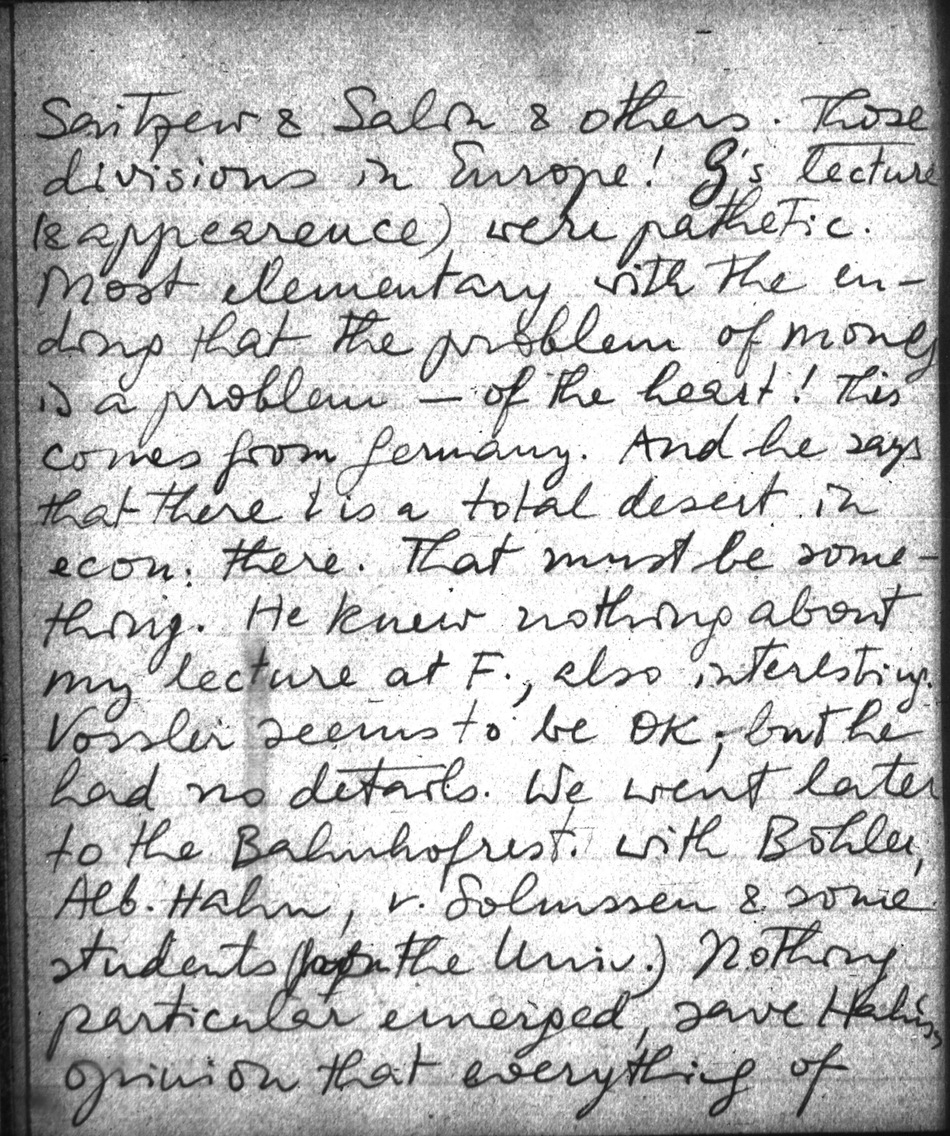 Saitzew & Salin & others. Those
divisions in Europe! G's lecture
(& appearence) were pathetic.
Most elementary with the en-
ding that the problem of money
is a problem — of the heart! This
comes from Germany. And he says
that there is a total desert in
econ. there. That must be some-
thing. He knew nothing about
my lecture at F., also interesting.
Vossler seems to be OK, but he
had no details. We went later
to the Bahnhofrest. with Böhler,
Alb. Hahn, v. Solmssen & some
students the Univ.) Nothing
particular emerged, save Hahn's
opinion that everything of